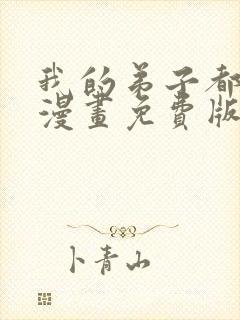 我的弟子都
漫畫免費版
卜青山